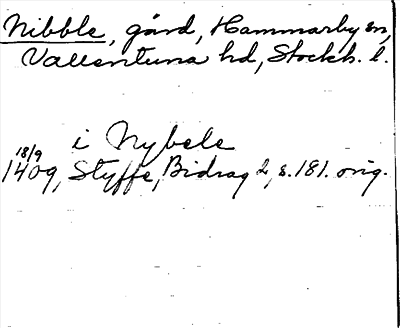 Nibble, gård, Hammarby sn,
Vallentuna hd, Stockh. l.
i Nybele
18/9
1409, Styffe, Bidrag 2, s. 181. orig.